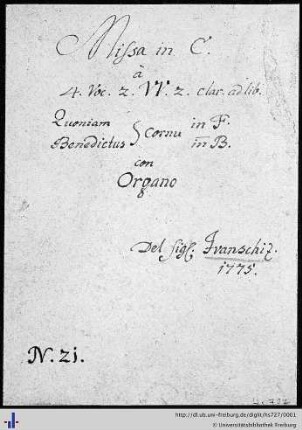 Missa in C.
à
4. Voc. 2. VV. 2. Clar. ad lib.
Quoniam } Cornu in F.
Benedictus } in B.
con
Organo
Del Sigl: Ivanschiz.
1775.
N. 21.
http://dl.ub.uni-freiburg.de/diglit/hs727/0001
© Universitätsbibliothek Freiburg